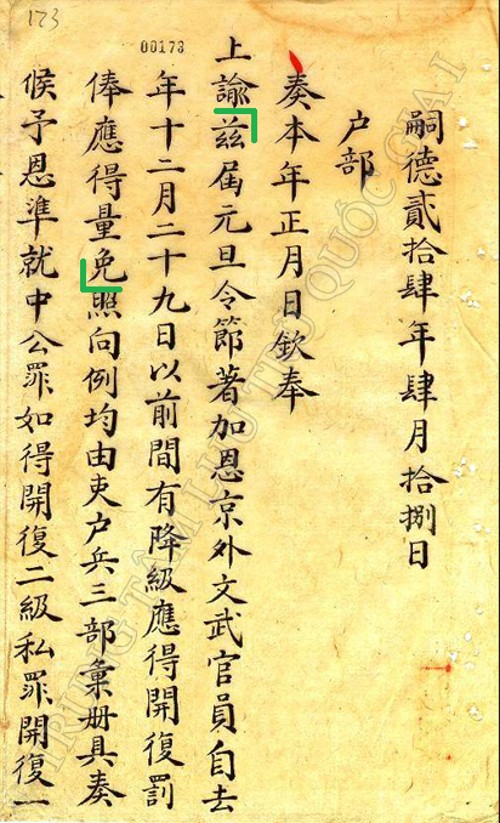 嗣德貳拾肆年肆月拾捌日
户部
奏本年正月日欽奉
上諭兹届元旦令節著加恩京外文武官員自去
年十二月二十九日以前間有降級應得開復罰
俸應得量免照向例均由吏户兵三部彙册具奏
候予恩準就中公罪如得開復二級私罪開復一
173
00173
TRUNG TÂM LƯU TRỮ QUỐC GIA I